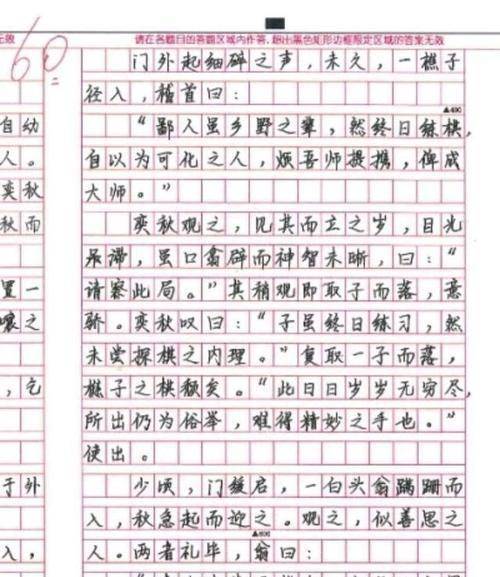 请在各题目的答题区域内作答,超出黑色矩形边框限定区域的答案无效
无效
60
门外起细碎之声，未久，一樵子
径入，稽首曰：
▲400
“鄙人虽乡野之辈，然终日练棋，
自以为可化之人，烦吾师提携，俾成
大师。”
奕秋观之，见其而立之岁，目光
呆滞，虽口翕辟而神智未晰，曰：“
请察此局。”其稍观即取子而落，意
骄。奕秋叹曰：“子虽终日练习，然
未尝探棋之内理。”复取一子而落，
樵子之棋颓矣。“此日日岁岁无穷尽，
所出仍为俗举，难得精妙之手也。”
使出。
少顷，门缓启，一白头翁蹒跚而
入，秋急起而迎之。观之，似善思之
▲600
人。两者礼毕，翁曰：
自幼
人。
奕秋
秋而
置一
嚷之
，乞
于外
入，